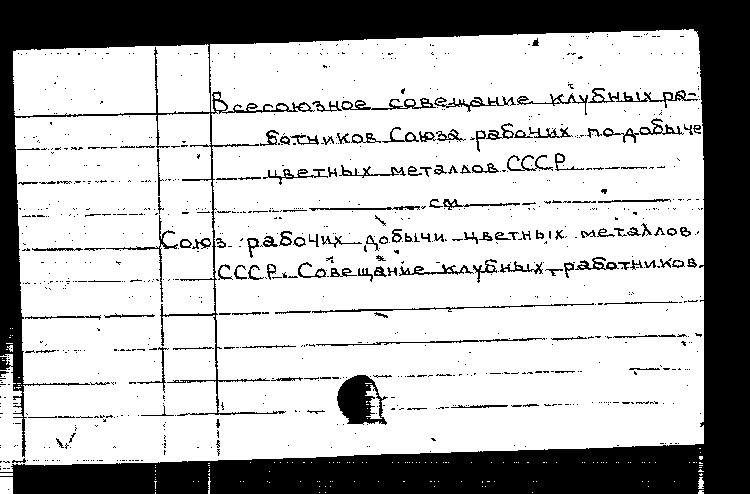 Всесоюзное совещание клубных ра-
ботников Союза рабочих по добыче
цветных металлов СССР.
см
Союз рабочих добычи цветных металлов
СССР. Совещание клубных работников.